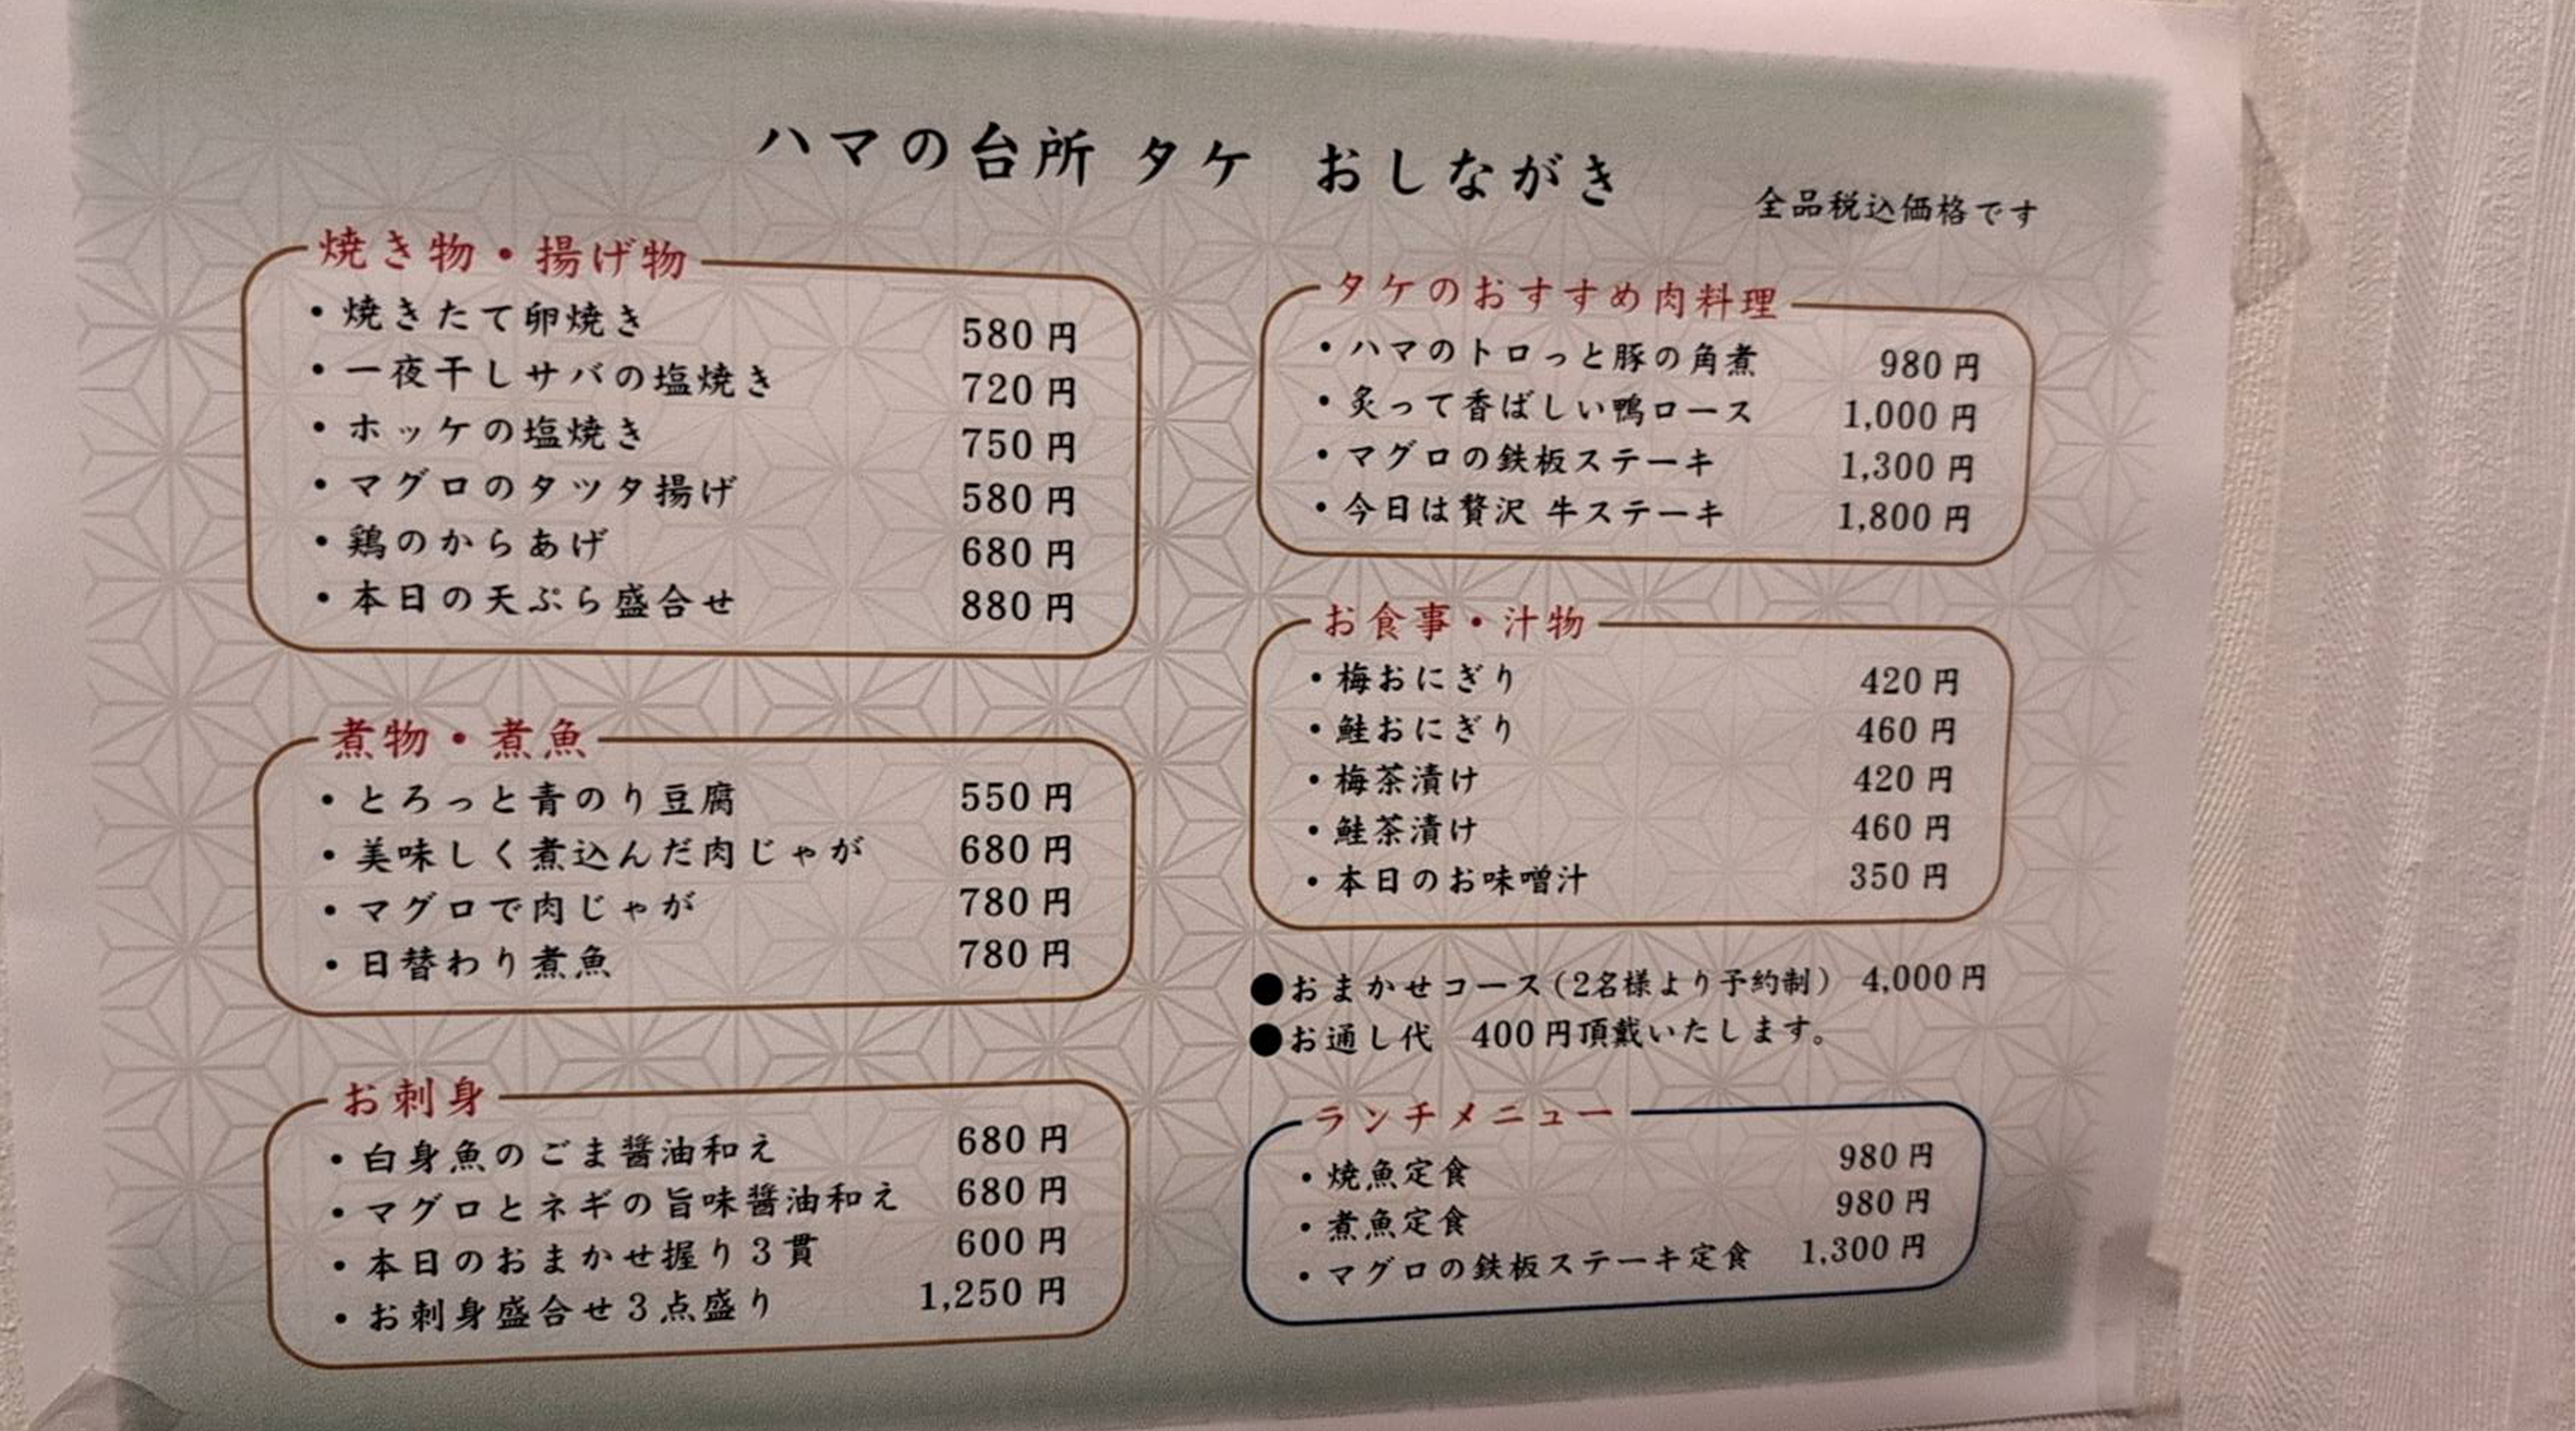 ハマの台所 タケ おしながき
全品税込価格です
焼き物・揚げ物
・焼きたて卵焼き 580円
・一夜干しサバの塩焼き 720円
・ホッケの塩焼き 750円
・マグロのタツタ揚げ 580円
・鶏のからあげ 680円
・本日の天ぷら盛合せ 880円
煮物・煮魚
・とろっと青のり豆腐 550円
・美味しく煮込んだ肉じゃが 680円
・マグロで肉じゃが 780円
・日替わり煮魚 780円
お刺身
・白身魚のごま醤油和え 680円
・マグロとネギの旨味醤油和え 680円
・本日のおまかせ握り3貫 600円
・お刺身盛合せ3点盛り 1,250円
タケのおすすめ肉料理
・ハマのトロっと豚の角煮 980円
・炙って香ばしい鴨ロース 1,000円
・マグロの鉄板ステーキ 1,300円
・今日は贅沢 牛ステーキ 1,800円
お食事・汁物
・梅おにぎり 420円
・鮭おにぎり 460円
・梅茶漬け 420円
・鮭茶漬け 460円
・本日のお味噌汁 350円
●おまかせコース(2名様より予約制) 4,000円
●お通し代 400円頂戴いたします。
ランチメニュー
・焼魚定食 980円
・煮魚定食 980円
・マグロの鉄板ステーキ定食 1,300円